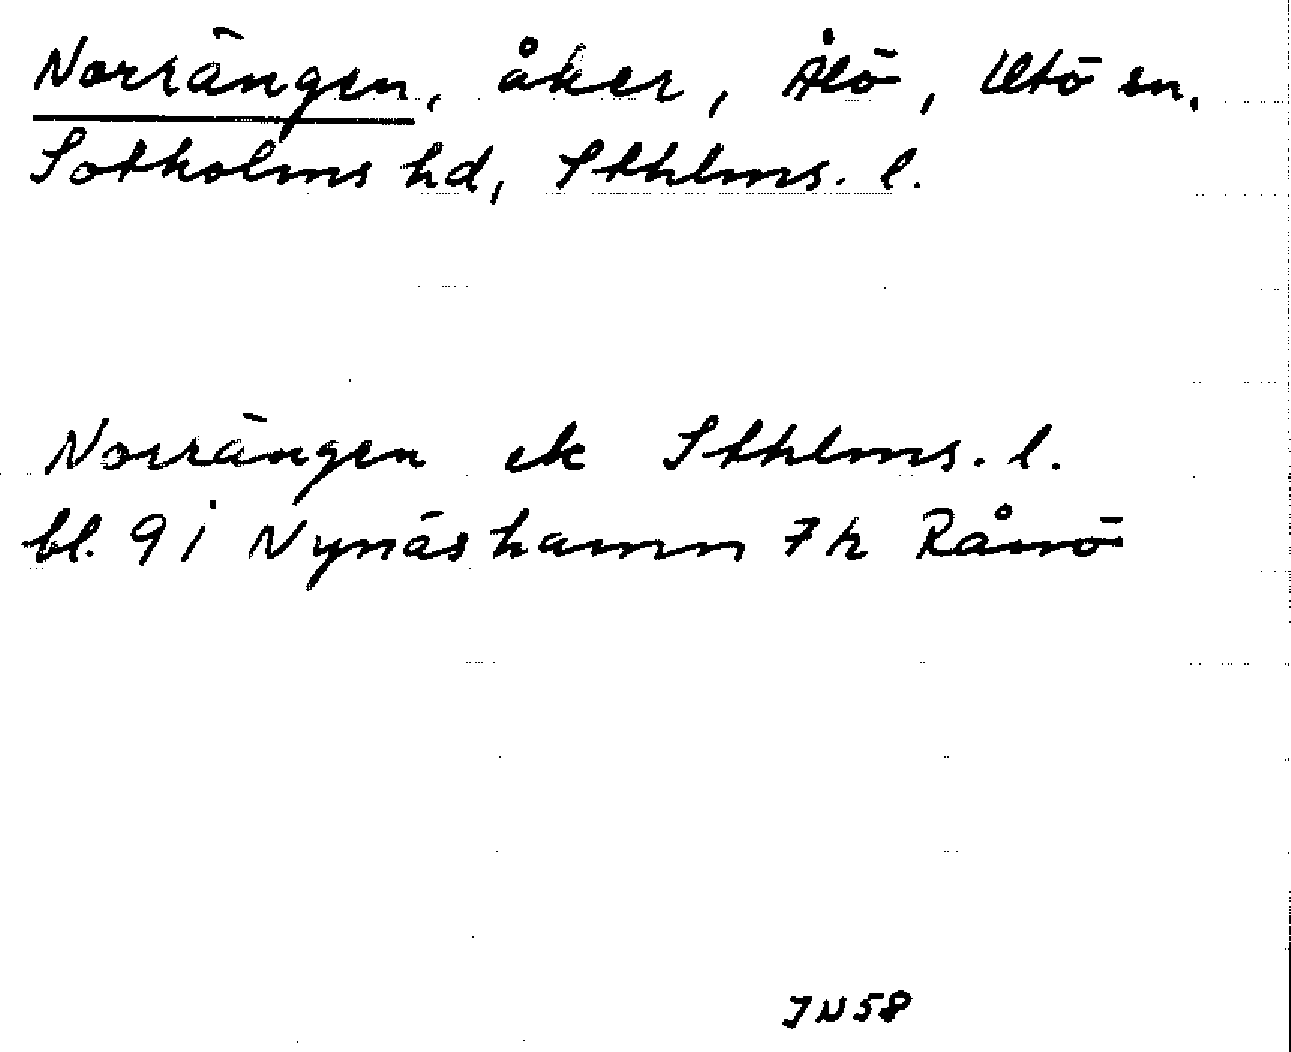 Norrängen, åker, Ålö, Utö sn.
Sotholms hd, Sthlms. l.
Norrängen ek Sthlms. l.
bl. 9 i Nynäshamn 7 h Rånö
JN58